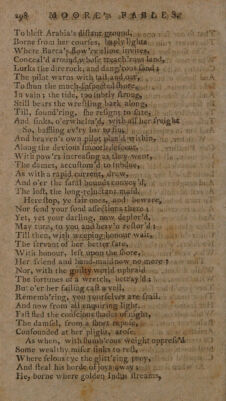 298 MOORE's FABLES.
To bleſt Arabia's diſtant ground,
Borne from her courſes, haply lights
Where Barca's flow'ry clime invites,
Conceal'd around whoſe treach'rous land,
Lurks the dire rock, and dang'rous ſand;
The pilot warns with ſail and oar,
To ſhun the much-ſuſpected ſhore,
In vain; the tide, too ſubtly ſtrong,
Still bears the wreſtling bark along,
Till, found'ring, ſhe reſigns to fate,
And ſinks, o'erwhelm'd, with all her freight
So, baffling ev'ry bar to ſin,
And heaven's own pilot plac'd within,
Along the devious ſmooth deſcent,
With pow'rs increaſing as they went,
The dames, accuſtom'd to ſubdue,
As with a rapid current, drew,
And o'er the fatal bounds convey'd,
The loſt, the long-reluctant maid.
Here ſtop, ye fair ones, and beware,
Nor ſend your fond affections there;
Yet, yet your darling, now deplor'd,
May turn, to you and heav'n reſtor'd;
Till then, with weeping honour wait,
The ſervant of her better fate,
With honour, left upon the ſhore,
Her friend and hand-maid now no more;
Nor, with the guilty world upbraid
The fortunes of a wretch, betray'd;
But o'er her failing caſt a veil,
Rememb'ring, you yourſelves are frail.
And now from all enquiring light,
Faſt fled the conſcious ſhades of night,
The damſel, from a ſhort repoſe,
Confounded at her plight, aroſe.
As when, with ſlumb'rous weight oppreſs'd
Some wealthy miſer ſinks to reſt,
Where felons eye the glitt'ring prey,
And ſteal his horde of joys away;
He, borne where golden Indus ſtreams,